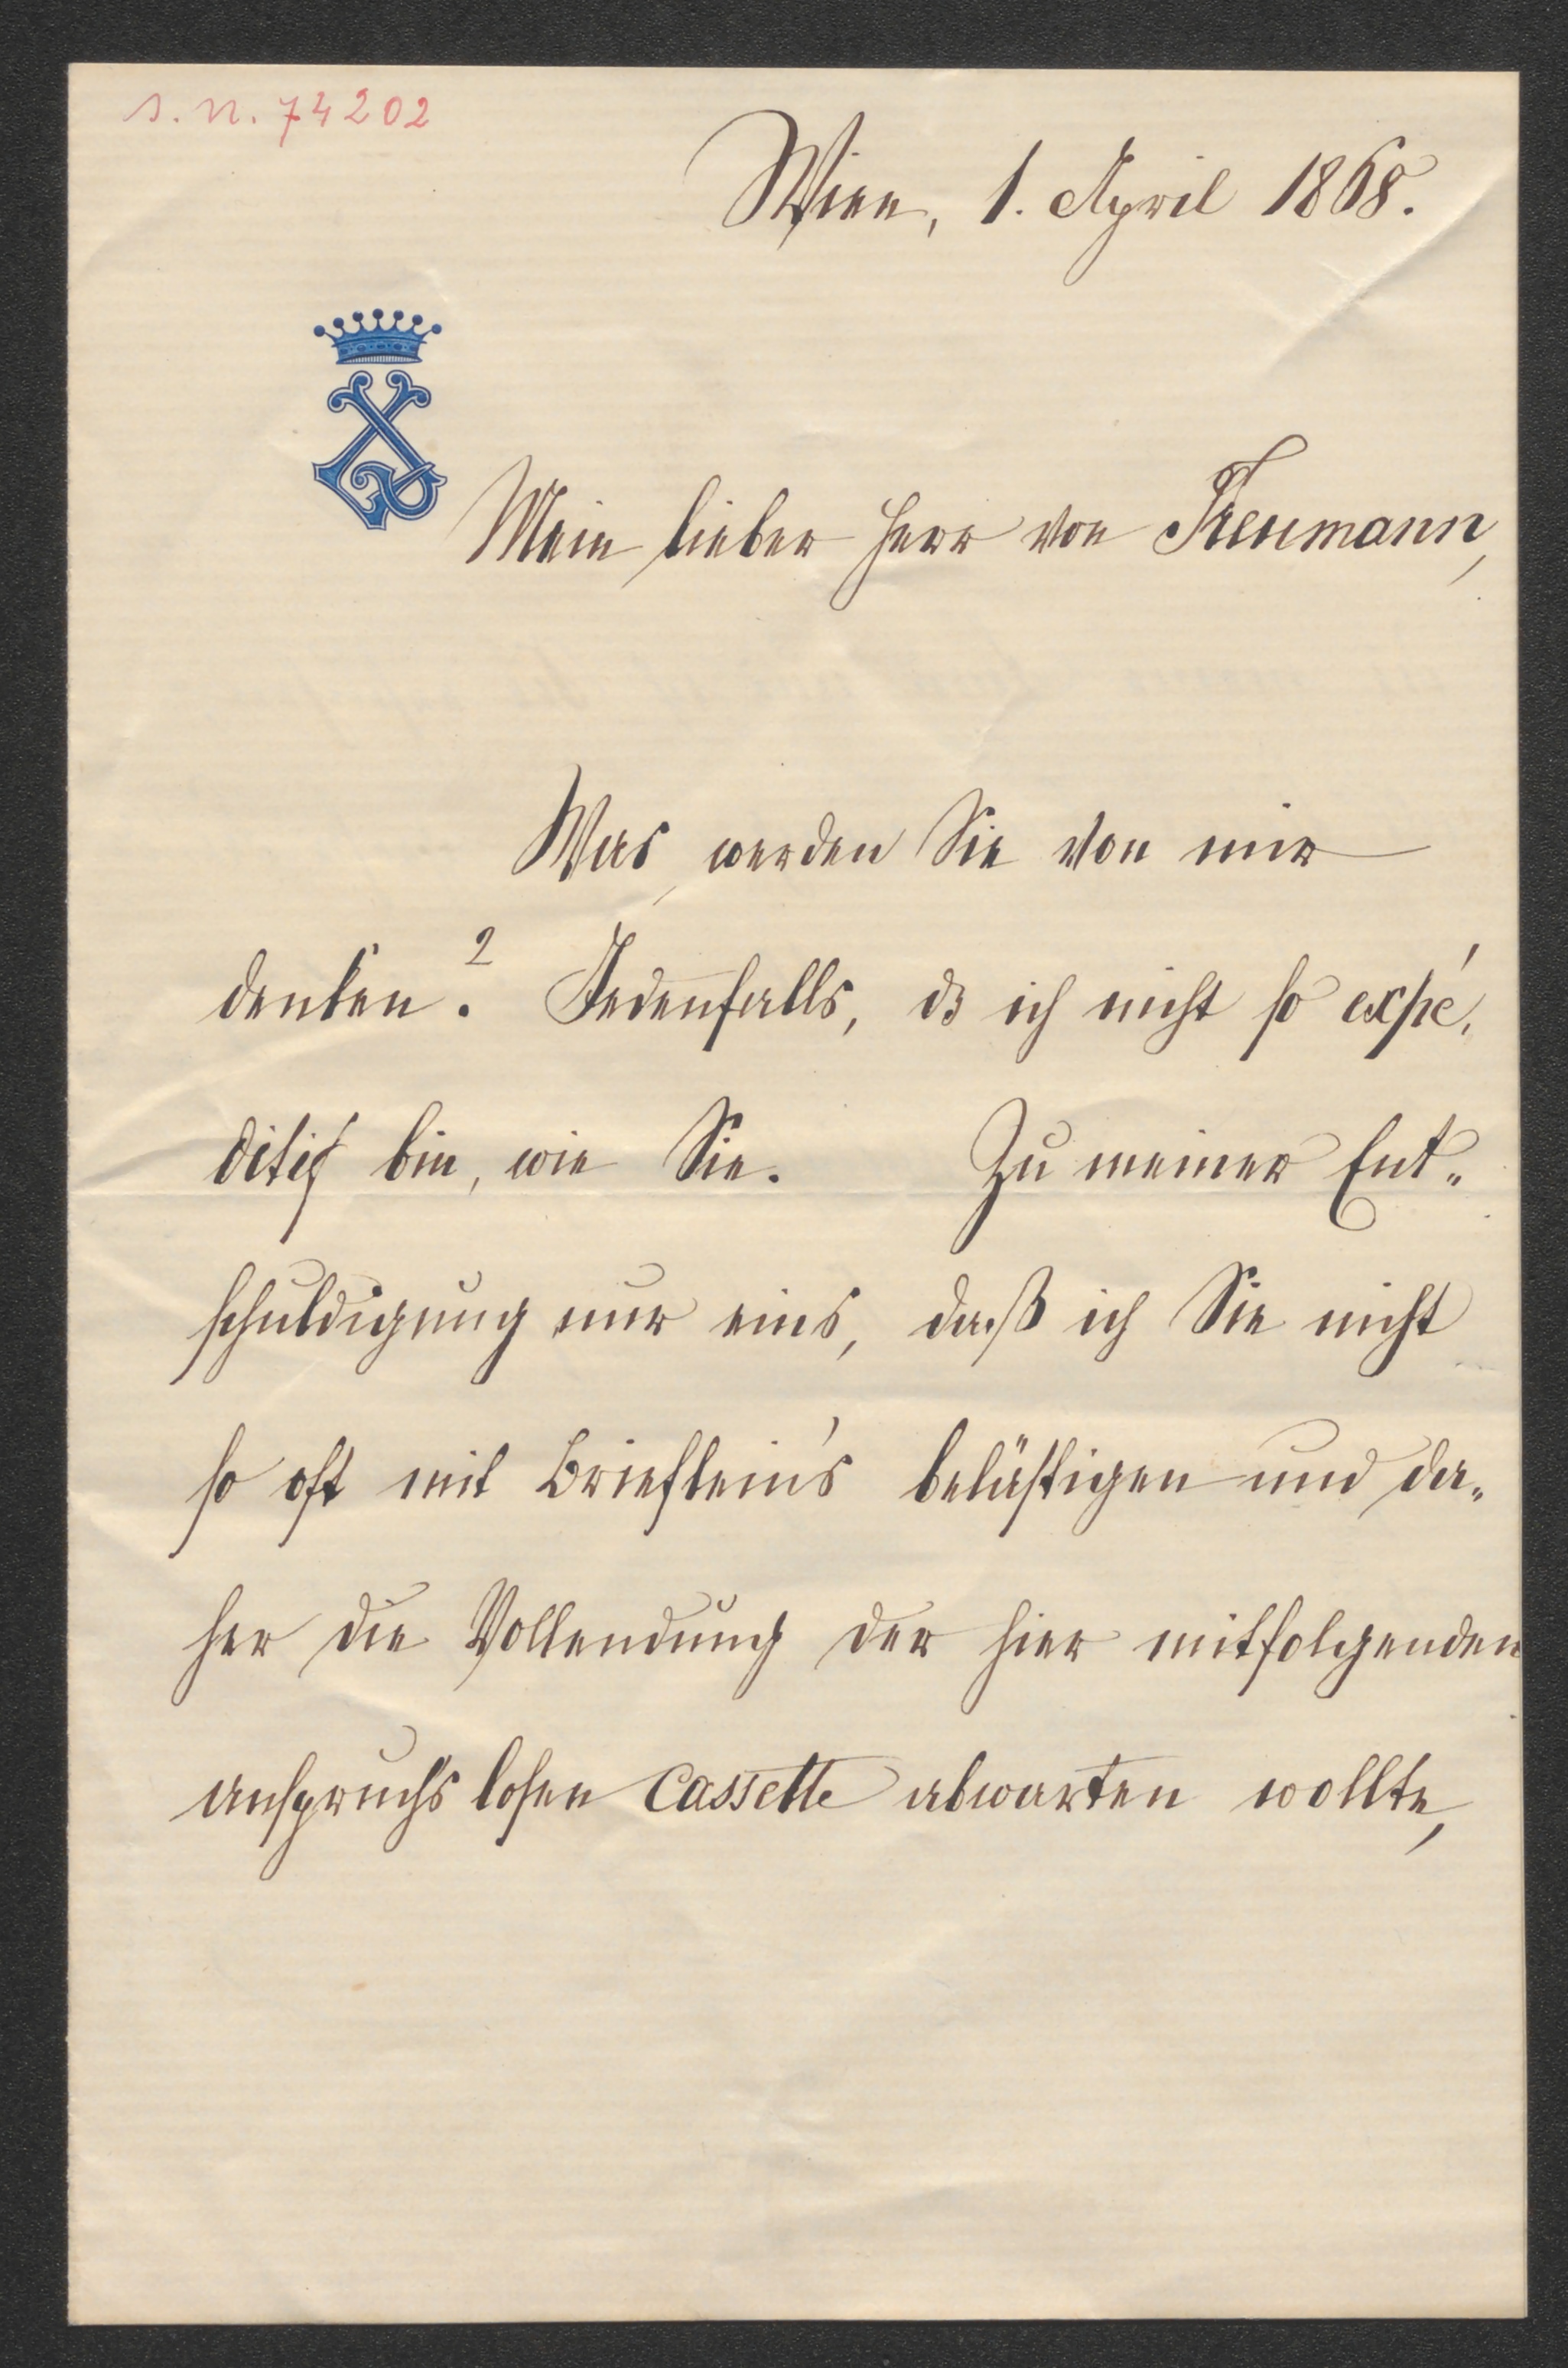 s. n. 74202
Wien, 1. April 1868.
Mein lieber Herr von Treumann,
Was werden Sie von mir
denken? Jedenfalls, dß ich nicht so expé,
ditif bin, wie Sie. Zu meiner Ent„
schuldigung nur eins, daß ich Sie nicht
so oft mit Brieflein's belästigen und da„
her die Vollendung der hier mitfolgenden
anspruchslosen Cassette abwarten wollte,